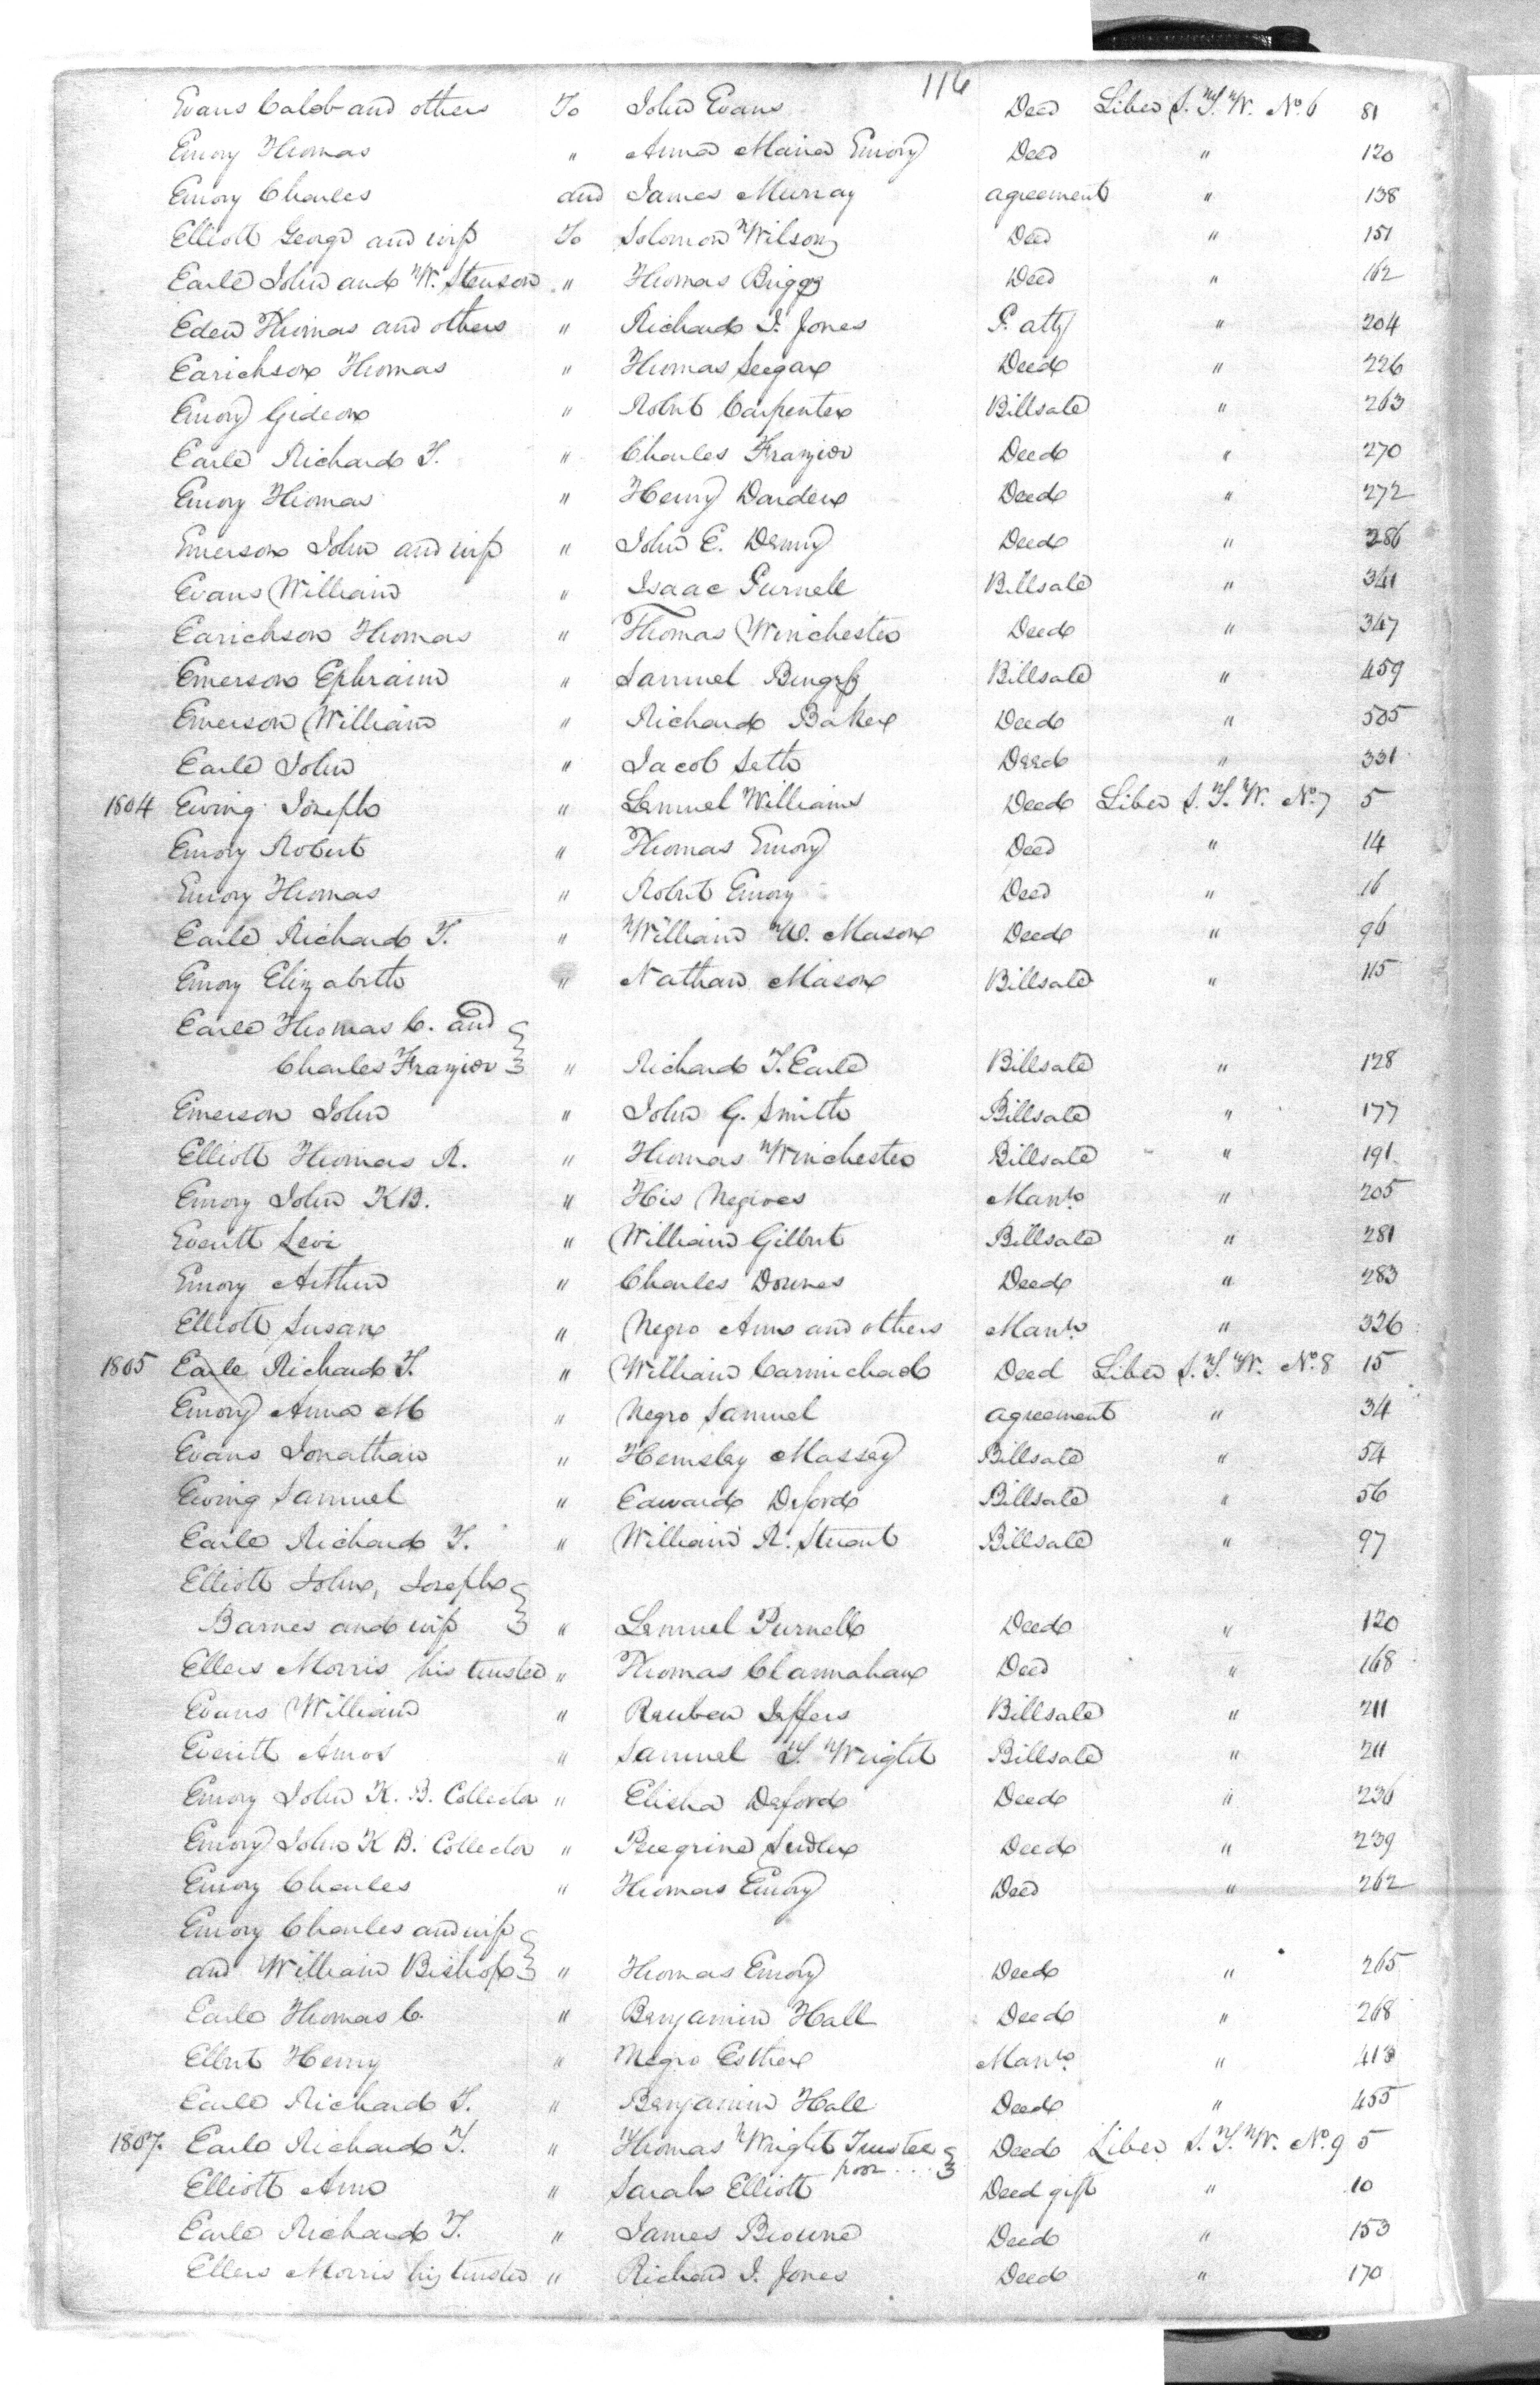 116
Evans Caleb and others To John Evans Deed Liber S.T.W. No. 6 81
Emory Thomas " Anna Maria Emory Deed " 120
Emory Charles and James Murray agreement " 138
Elliott George and wife To Solomon Wilson Deed " 151
Earle John and W. Stenson " Thomas Briggs Deed " 162
Eden Thomas and others " Richard I. Jones P. atty " 204
Earickson Thomas " Thomas Seegar Deed " 226
Emory Gideon " Robert Carpenter Billsale " 263
Earle Richard T. " Charles Frazier Deed " 270
Emory Thomas " Henry Darden Deed " 272
Emerson John and wife " John E. Denny Deed " 286
Evans William " Isaac Purnell Billsale " 341
Earickson Thomas " Thomas Winchester Deed " 347
Emerson Ephraim " Samuel Billsale " 459
Emerson William " Richard Baker Deed " 505
Earle John " Jacob Seth Deed " 331
1804 Ewing Joseph " Lemuel Williams Deed Liber S.T.W. No. 7 5
Emory Robert " Thomas Emory Deed " 14
Emory Thomas " Robert Emory Deed " 16
Earle Richard T. " William W. Mason Deed " 96
Emory Elizabeth " Nathan Mason Billsale " 115
Earle Thomas C. and
Charles Frazier " Richard T. Earle Billsale " 128
Emerson John " John G. Smith Billsale " 177
Elliott Thomas R. " Thomas Winchester Billsale " 191
Emory John K B. " His Negroes Manto " 205
Everitt Levi " William Gilbert Billsale " 281
Emory Arthur " Charles Downes Deed " 283
Elliott Susan " Negro Ann and others Manto " 326
1805 Earle Richard T. " William Carmichael Deed Liber S.T.W. No. 8 15
Emory Anna M " Negro Samuel agreement " 34
Evans Jonathan " Hemsley Massey Billsale " 54
Ewing Samuel " Edward Deford Billsale " 56
Earle Richard T. " William R. Stuart Billsale " 97
Elliott John, Joseph
Barnes and wife " Lemuel Purnell Deed " 120
Ellers Morris his trustee " Thomas Clannahan Deed " 168
Evans William " Reuben Jeffers Billsale " 211
Everitt Amos " Samuel T. Wright Billsale " 211
Emory John K. B. Collector " Elisha Deford Deed " 236
Emory John K B. Collector " Peregrine Sudler Deed " 239
Emory Charles " Thomas Emory Deed " 262
Emory Charles and wife
and William Bishop " Thomas Emory Deed " 265
Earle Thomas C. " Benjamin Hall Deed " 268
Elbert Henry " Negro Esther Manto " 413
Earle Richard T. " Benjamin Hall Deed " 455
1807. Earle Richard T. " Thomas Wright Trustee Deed Liber S.T.W. No. 9 5
poor ....
Elliott Ann " Sarah Elliott Deed gift " 10
Earle Richard T. " James Browne Deed " 153
Ellers Morris his trustee " Richard I. Jones Deed " 170